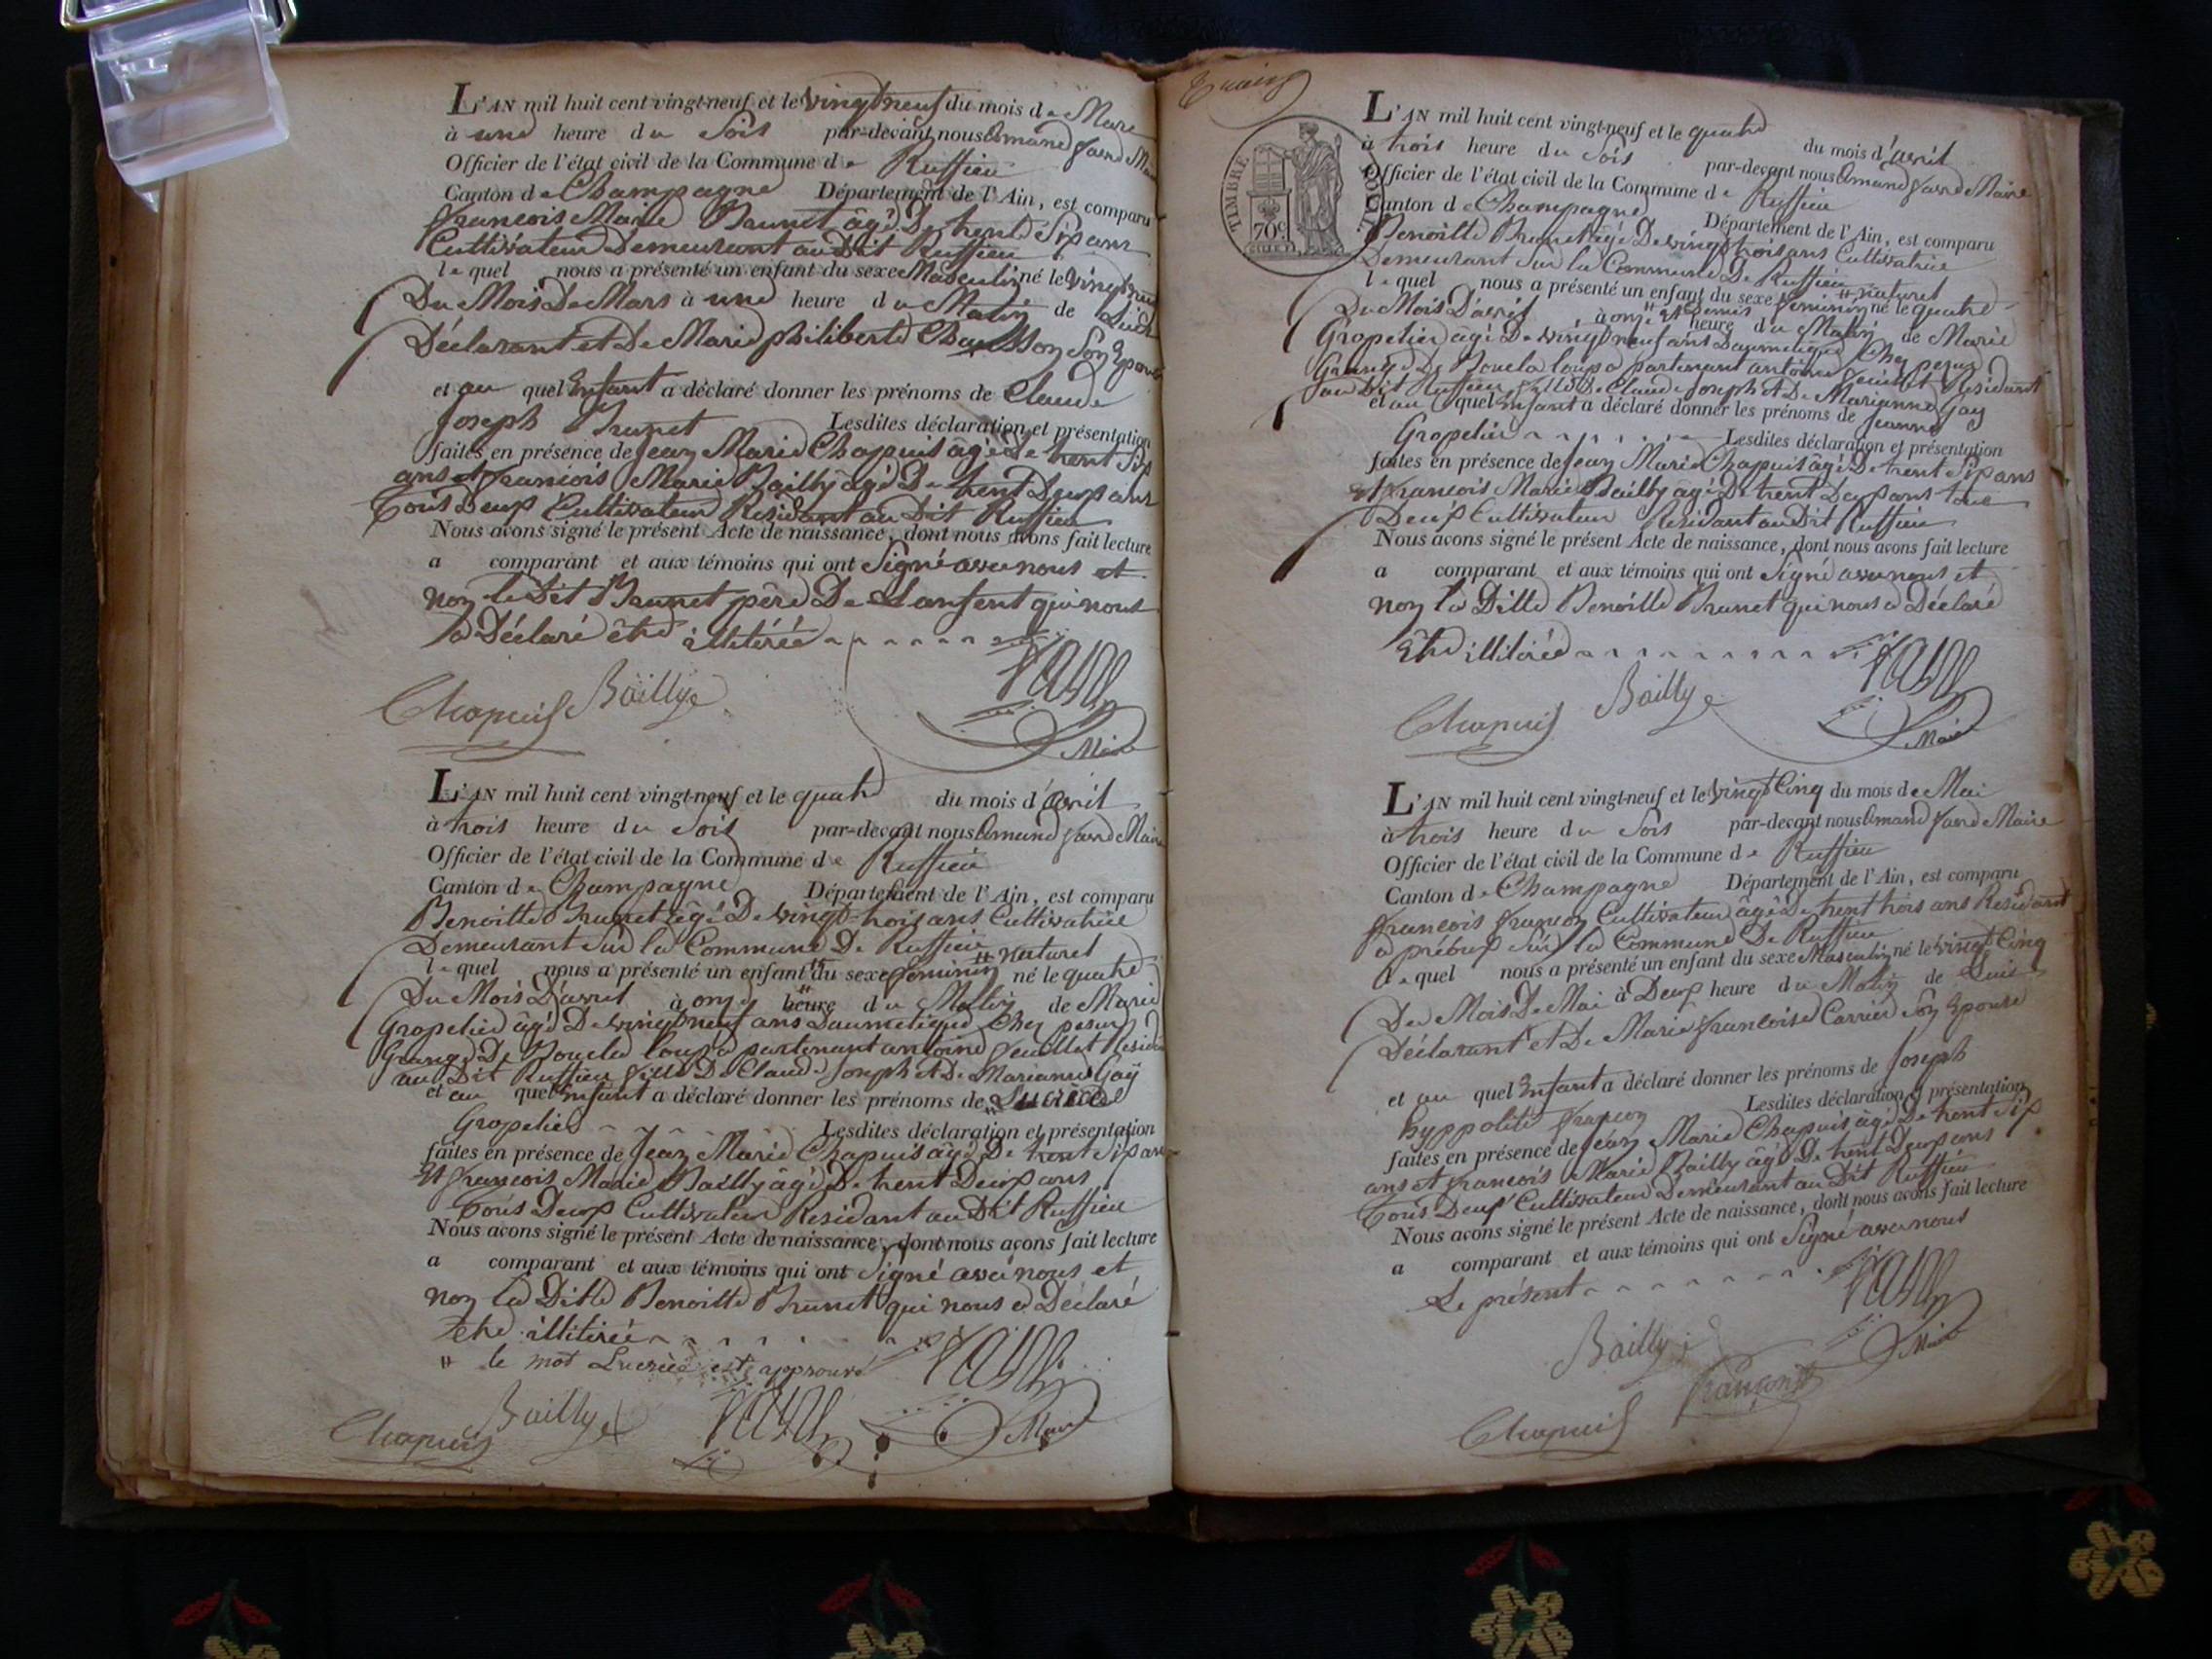 L'AN mil huit cent vingt-neuf et le vingt neuf du mois de Mars
à une heure du Soir par-devant nous Amand favre Maire
Officier de l'état civil de la Commune de Ruffieu
Canton de Champagne Département de l'Ain, est comparu
francois Marie Brunet âgé De trente Six ans
Cultivateur Demeurant au Dit Ruffieu
le quel nous a présenté un enfant du sexe Masculin né le vingt neuf
Du Mois De Mars à une heure du Matin de Luis
Déclarant et De Marie philiberte Son Epouse
et au quel Enfant a déclaré donner les prénoms de Claude
Joseph Brunet Lesdites déclaration et présentation
faites en présence de Jean Marie Chapuis âgé De trent Six
ans et francois Marie Bailly âgé De trent Deux ans
Tous Deux Cultivateur Residant au Dit Ruffieu
Nous avons signé le présent Acte de naissance, dont nous avons fait lecture
a comparant et aux témoins qui ont Signé avec nous et
non le Dit Brunet père De Lanfent qui nous
a Déclaré être illitérée
Chapuis Bailly
Maire
L'AN mil huit cent vingt-neuf et le quatre du mois d'avril
à trois heure du Soir par-devant nous Amand favre Maire
Officier de l'état civil de la Commune de Ruffieu
Canton de Champagne Département de l'Ain, est comparu
Benoitte Brunet âgé De vingt trois ans Cultivatrice
Demeurant Sur la Commune De Ruffieu # naturel
le quel nous a présenté un enfant # du sexe feminin né le quatre
Du Mois D'avril à onze heure du Matin de Marie
Gropelier âgé De vingt neuf ans Daumetique Chez
Grange De Boucla loup a partenant antoine Residant
au Dit Ruffieu fille De Claude Joseph et De Marianne Gay
et au quel Enfant a déclaré donner les prénoms de # Lucrèce
Gropelier Lesdites déclaration et présentation
faites en présence de Jean Marie Chapuis âgé De trent Six ans
Et francois Marie Bailly âgé De trent Deux ans
Tous Deux Cultivateur Residant au Dit Ruffieu
Nous avons signé le présent Acte de naissance, dont nous avons fait lecture
a comparant et aux témoins qui ont Signé avec nous et
non la Ditte Benoitte Brunet qui nous a Déclaré
Etre illitirée
# le mot Lucrèce est approuvé
Chapuis Bailly
Maire
TIMBRE ROYAL
70c
L'AN mil huit cent vingt-neuf et le quatre du mois d'avril
à trois heure du Soir par-devant nous Amand favre Maire
Officier de l'état civil de la Commune de Ruffieu
Canton de Champagne Département de l'Ain, est comparu
Benoitte Brunet âgé De vingt trois ans Cultivatrice
Demeurant Sur la Commune De Ruffieu
le quel nous a présenté un enfant du sexe feminin # naturel né le quatre
Du Mois D'avril à onze et Demis heure du Matin de Marie
Gropelier âgé De vingt neuf ans Daumetique Chez
Grange De Boucla loup a partenant antoine Residant
au Dit Ruffieu fille De Claude Joseph et De Marianne Gay
et au quel Enfant a déclaré donner les prénoms de Jeanne
Gropelier Lesdites déclaration et présentation
faites en présence de Jean Marie Chapuis âgé De trent Six ans
et francois Marie Bailly âgé De trent Deux ans tous
Deux Cultivateur Residant au Dit Ruffieu
Nous avons signé le présent Acte de naissance, dont nous avons fait lecture
a comparant et aux témoins qui ont Signé avec nous et
non la Ditte Benoitte Brunet qui nous a Déclaré
Etre illitirée
Chapuis Bailly
Maire
L'AN mil huit cent vingt-neuf et le vingt Cinq du mois de Mai
à trois heure du Soir par-devant nous Amand favre Maire
Officier de l'état civil de la Commune de Ruffieu
Canton de Champagne Département de l'Ain, est comparu
francois françon Cultivateur âgé De trent trois ans Residant
a prébux Sur la Commune De Ruffieu
le quel nous a présenté un enfant du sexe Masculin né le vingt Cinq
Du Mois De Mai à Deux heure du Matin de Luis
Déclarant et De Marie francoise Carrier Son Epouse
et au quel Enfant a déclaré donner les prénoms de Joseph
hyppolite françon Lesdites déclaration et présentation
faites en présence de Jean Marie Chapuis âgé De trent Six
ans et francois Marie Bailly âgé De trent Deux ans
Tous Deux Cultivateur Demeurant au Dit Ruffieu
Nous avons signé le présent Acte de naissance, dont nous avons fait lecture
a comparant et aux témoins qui ont Signé avec nous
Le présent
Bailly
Maire
françon
Chapuis